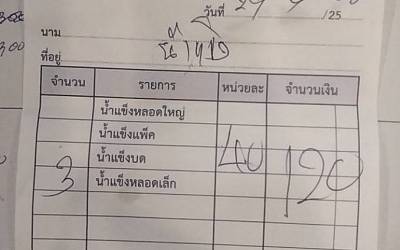 วันที่ 29 /25
นาม
ที่อยู่
จำนวน รายการ หน่วยละ จำนวนเงิน
น้ำแข็งหลอดใหญ่
น้ำแข็งแพ็ค
น้ำแข็งบด
3 น้ำแข็งหลอดเล็ก 40 120